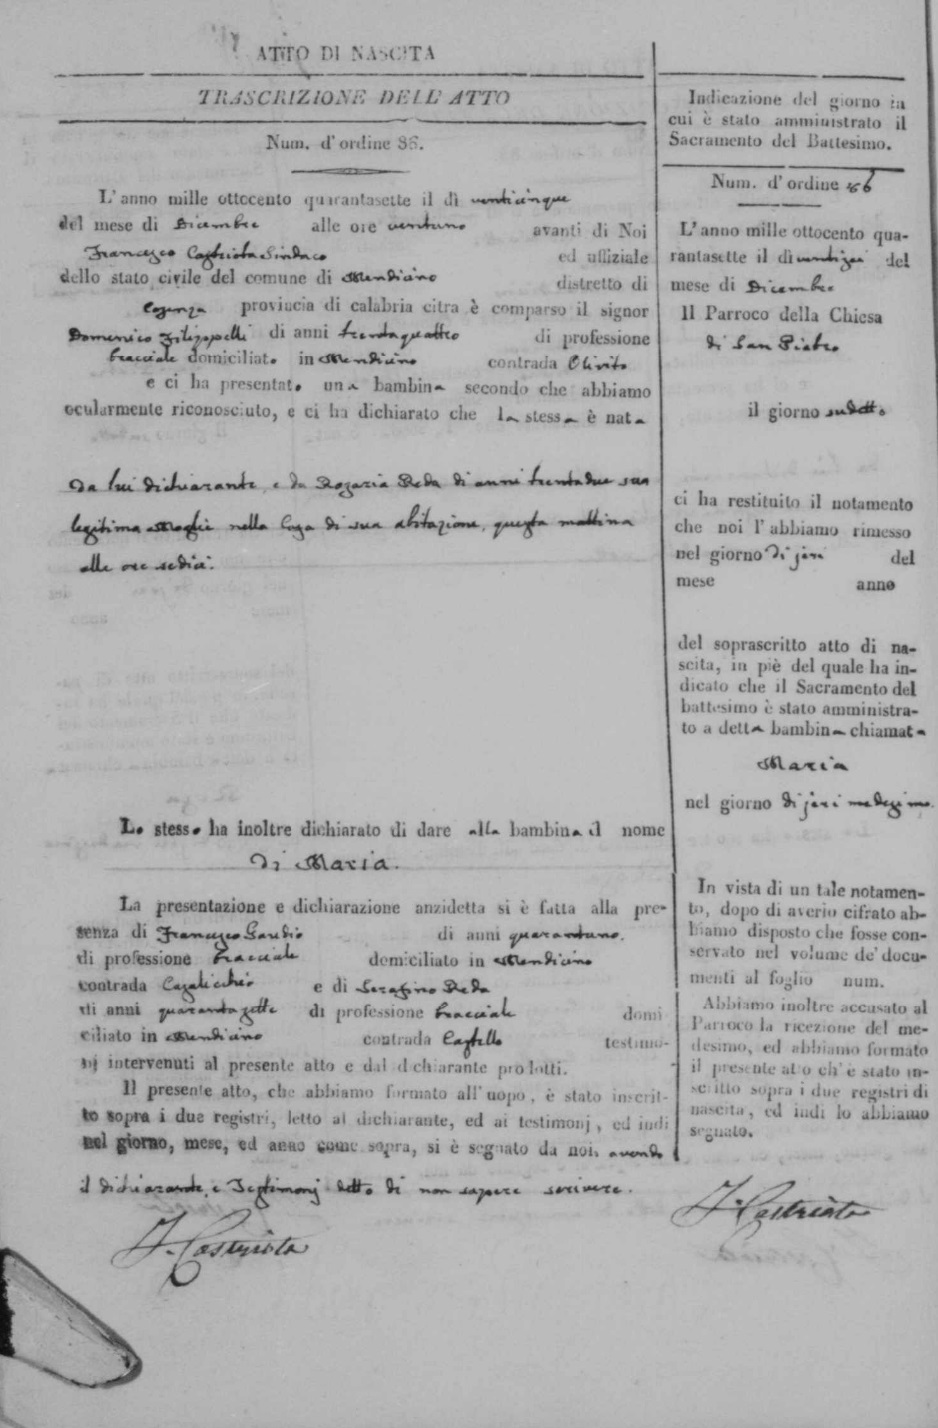 ATTO DI NASCITA
TRASCRIZIONE DELL' ATTO
Num. d'ordine 86.
L'anno mille ottocento quarantasette il dì venticinque
del mese di Dicembre alle ore ventuno avanti di Noi
Francesco Castriota Sindaco ed uffiziale
dello stato civile del comune di Mendicino distretto di
Cosenza provincia di calabria citra è comparso il signor
Domenico Filippelli di anni trentaquattro di professione
bracciale domiciliato in Mendicino contrada Olivito
e ci ha presentato una bambina secondo che abbiamo
ocularmente riconosciuto, e ci ha dichiarato che la stessa è nata
da lui dichiarante, e da Rosaria Reda di anni trentadue sua
legitima Moglie nella Casa di sua abitazione, questa mattina
alle ore sedici.
Lo stesso ha inoltre dichiarato di dare alla bambina il nome
di Maria.
La presentazione e dichiarazione anzidetta si è fatta alla pre-
senza di Francesco Gaudio di anni quarantuno.
di professione bracciale domiciliato in Mendicino
contrada Casalicchio e di Serafino Reda
di anni quarantasette di professione bracciale domi
ciliato in Mendicino contrada Castello testimo-
nj intervenuti al presente atto e dal dichiarante prodotti.
Il presente atto, che abbiamo formato all'uopo, è stato inscrit-
to sopra i due registri, letto al dichiarante, ed ai testimonj, ed indi
nel giorno, mese, ed anno come sopra, si è segnato da noi, avendo
il dichiarante, e Testimonj detto di non sapere scrivere.
F. Castriota
Indicazione del giorno in
cui è stato amministrato il
Sacramento del Battesimo.
Num. d'ordine 86
L'anno mille ottocento qua-
rantasette il dì ventisei del
mese di Dicembre
Il Parroco della Chiesa
di San Pietro
il giorno sudetto
ci ha restituito il notamento
che noi l'abbiamo rimesso
nel giorno di jeri del
mese anno
del soprascritto atto di na-
scita, in piè del quale ha in-
dicato che il Sacramento del
battesimo è stato amministra-
to a detta bambina chiamata
Maria
nel giorno di jeri medesimo.
In vista di un tale notamen-
to, dopo di averlo cifrato ab-
biamo disposto che fosse con-
servato nel volume de' docu-
menti al foglio num.
Abbiamo inoltre accusato al
Parroco la ricezione del me-
desimo, ed abbiamo formato
il presente atto ch'è stato in-
scritto sopra i due registri di
nascita, ed indi lo abbiamo
segnato.
F. Castriota